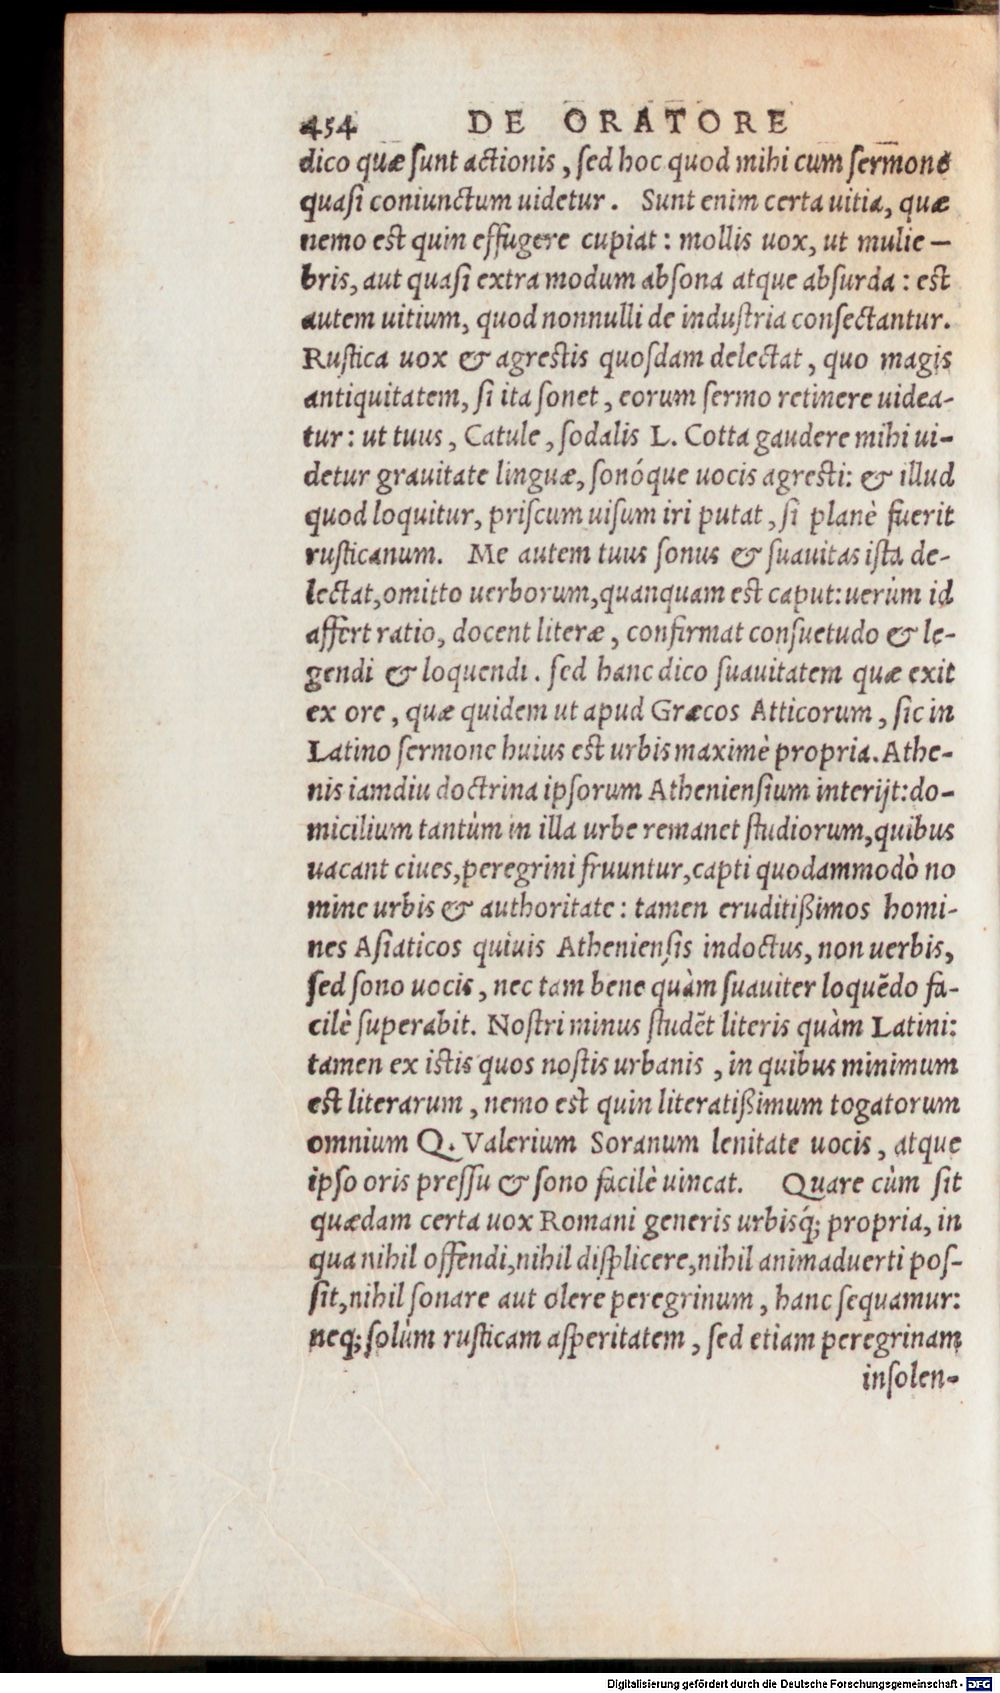 454 DE ORATORE
dico quæ ſunt actionis, ſed hoc quod mihi cum ſermone
quaſi coniunctum uidetur. Sunt enim certa uitia, quæ
nemo est quin effugere cupiat: mollis uox, ut mulie-
bris, aut quaſi extra modum abſona atque abſurda: est
autem uitium, quod nonnulli de induſtria conſectantur.
Ruſtica uox & agrestis quoſdam delectat, quo magis
antiquitatem, ſi ita ſonet, eorum ſermo retinere uidea-
tur: ut tuus, Catule, ſodalis L. Cotta gaudere mihi ui-
detur grauitate linguæ, ſonóque uocis agresti: & illud
quod loquitur, priſcum uiſum iri putat, ſi planè fuerit
ruſticanum. Me autem tuus ſonus & ſuauitas iſta de-
lectat, omitto uerborum, quanquam est caput: uerùm id
affert ratio, docent literæ, confirmat conſuetudo & le-
gendi & loquendi. ſed hanc dico ſuauitatem quæ exit
ex ore, quæ quidem ut apud Græcos Atticorum, ſic in
Latino ſermone huius est urbis maximè propria. Athe-
nis iamdiu doctrina ipſorum Athenienſium interijt: do-
micilium tantùm in illa urbe remanet ſtudiorum, quibus
uacant ciues, peregrini fruuntur, capti quodammodò no
mine urbis & authoritate: tamen eruditißimos homi-
nes Aſiaticos quiuis Athenienſis indoctus, non uerbis,
ſed ſono uocis, nec tam bene quàm ſuauiter loquẽdo fa-
cilè ſuperabit. Noſtri minus ſtudẽt literis quàm Latini:
tamen ex istis quos noſtis urbanis, in quibus minimum
est literarum, nemo est quin literatißimum togatorum
omnium Q. Valerium Soranum lenitate uocis, atque
ipſo oris preſſu & ſono facilè uincat. Quare cùm ſit
quædam certa uox Romani generis urbisq́; propria, in
qua nihil offendi, nihil diſplicere, nihil animaduerti poſ-
ſit, nihil ſonare aut olere peregrinum, hanc ſequamur:
neq; ſolùm ruſticam aſperitatem, ſed etiam peregrinam
inſolen-
Digitalisierung gefördert durch die Deutsche Forschungsgemeinschaft - DFG